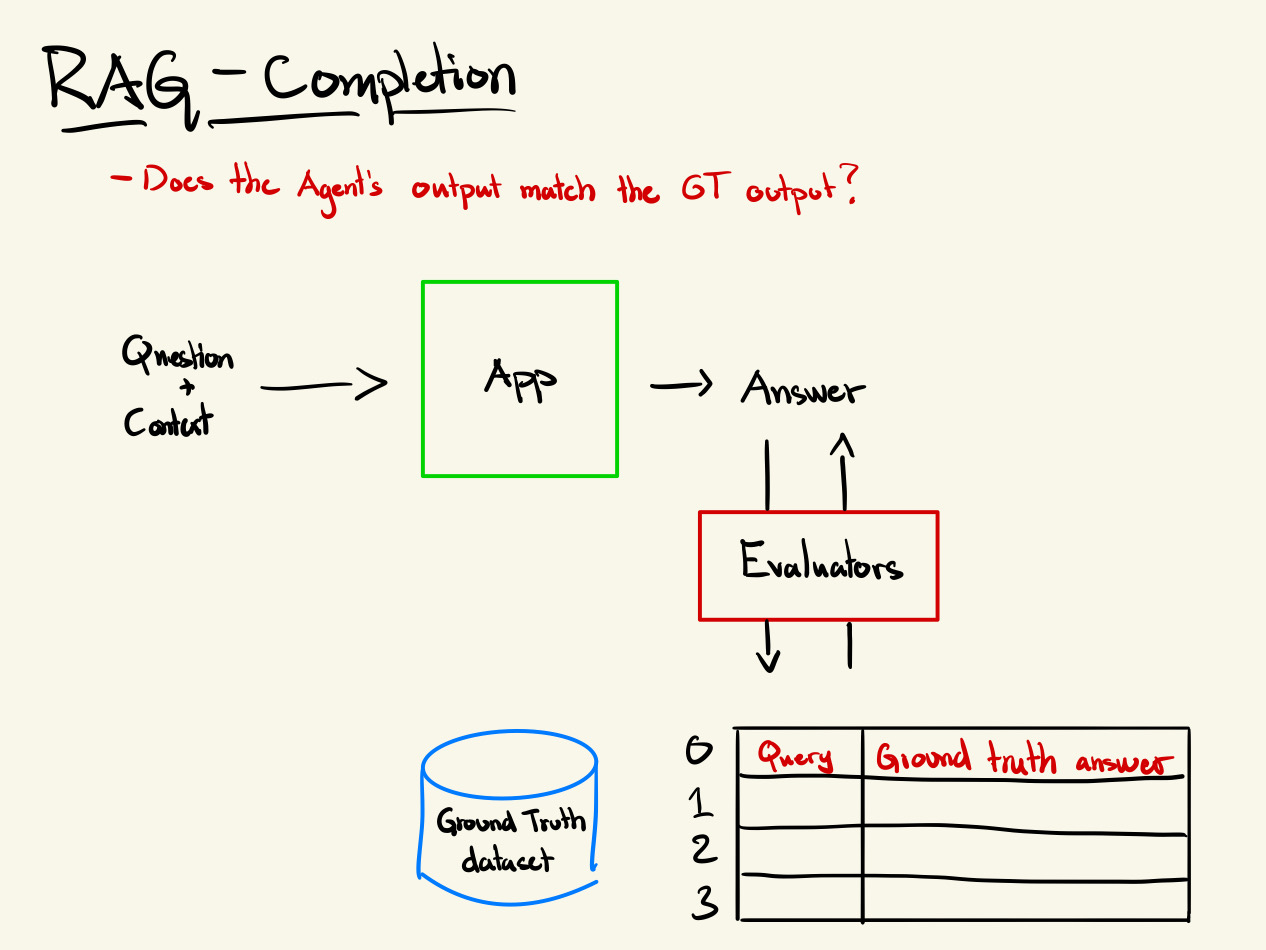 RAG - Completion
- Does the Agent's output match the GT output?
Question
+
Context
App
Answer
Evaluators
Ground Truth
dataset
0 Query Ground truth answer
1
2
3